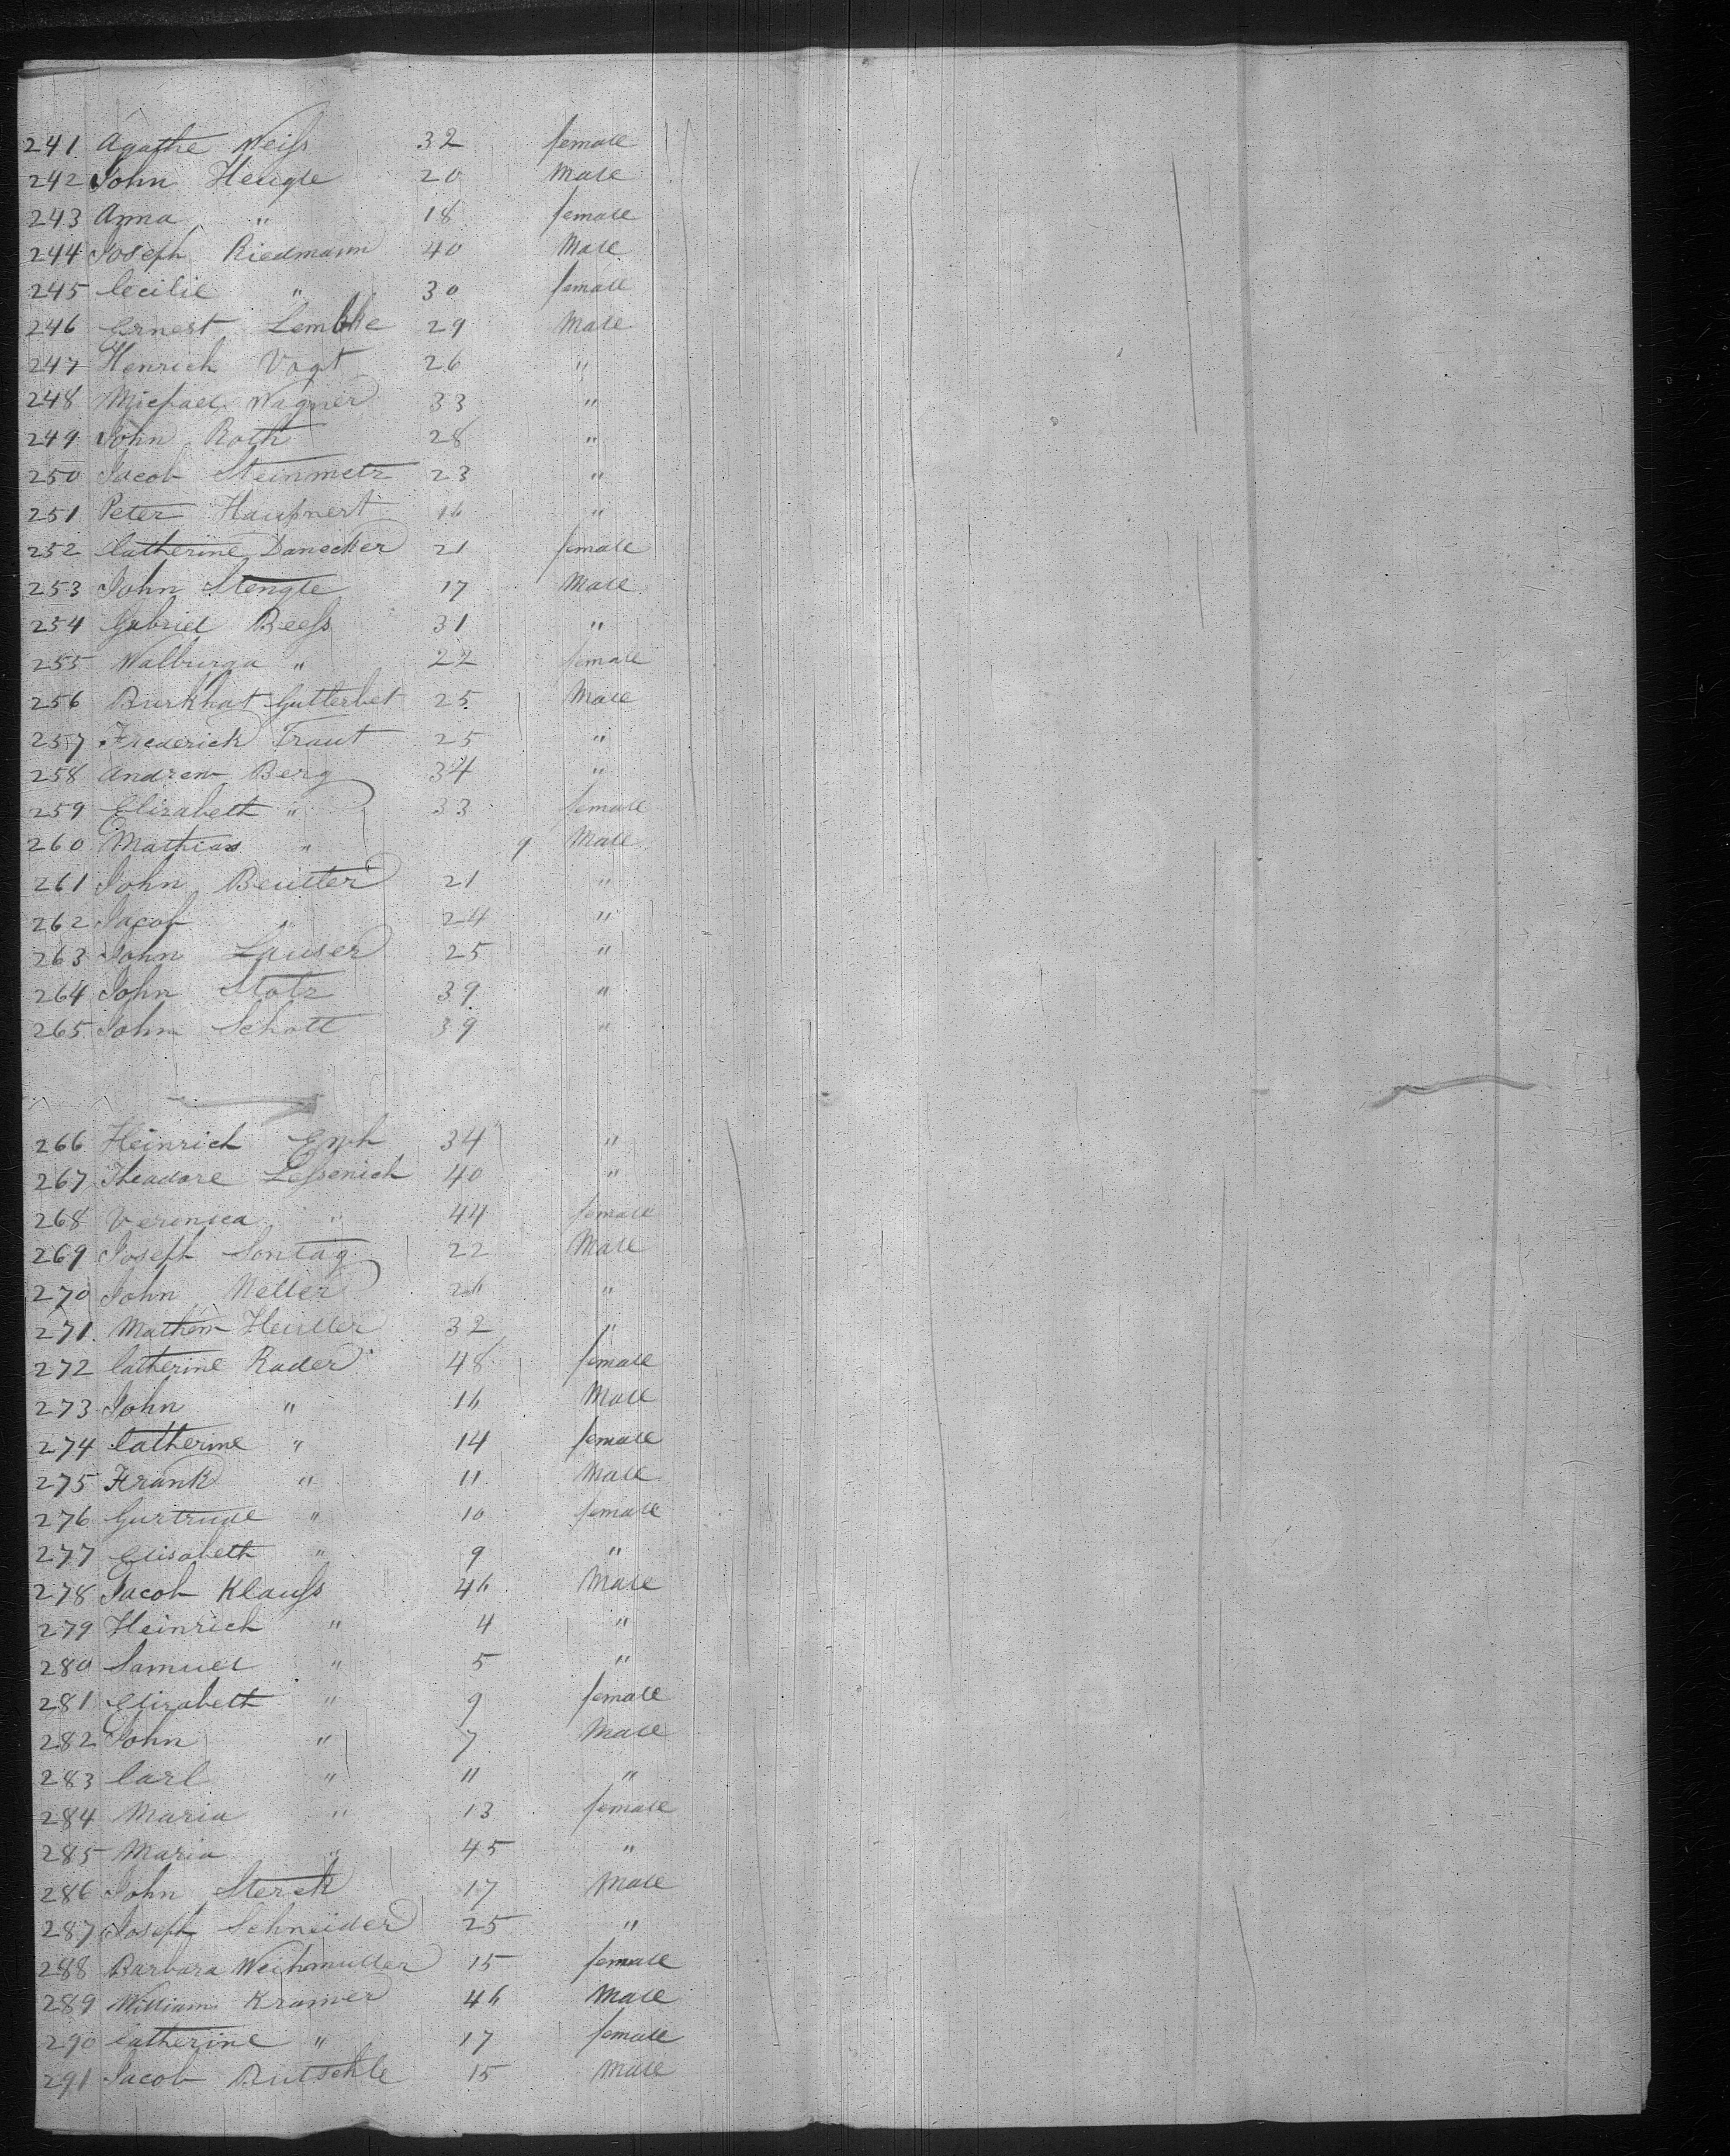 241 Agathe Weiss 32 female
242 John Heugle 20 Male
243 Anna " 18 female
244 Joseph Riedmann 40 Male
245 Cecilie " 30 female
246 Ernest Lembke 29 Male
247 Henrich Vogt 26 "
248 Michael Wagner 33 "
249 John Roth 28 "
250 Jacob Steinmetz 23 "
251 Peter Haupnert 16 "
252 Catherine Danecker 21 female
253 John Stengle 17 Male
254 Gabriel Beess 31 "
255 Walburga " 22 female
256 Burkhat Gutterbet 25 Male
257 Frederick Traut 25 "
258 Andrew Berg 34 "
259 Elizabeth " 33 female
260 Mathias " 9 Male
261 John Beutter 21 "
262 Jacob " 24 "
263 John Lauser 25 "
264 John Stotz 39 "
265 John Schott 39 "
266 Heinrich 34 "
267 Theadore Lessenich 40 "
268 Veronica " 44 female
269 Joseph Sontag 22 Male
270 John Neller 26 "
271 Heuller 32 "
272 Catherine Rader 48 female
273 John " 16 Male
274 Catherine " 14 female
275 Frank " 11 Male
276 Gurtrude " 10 female
277 Elisabeth " 9 "
278 Jacob Klauss 46 Male
279 Heinrich " 4 "
280 Samuel " 5 "
281 Elizabeth " 9 female
282 John " 7 Male
283 Carl " 11 "
284 Maria " 13 female
285 Maria " 45 "
286 John Sterck 17 Male
287 Joseph Schneider 25 "
288 Barbara Weihmuller 15 female
289 William Kramer 46 Male
290 Catherine " 17 female
291 Jacob Butschle 15 Male